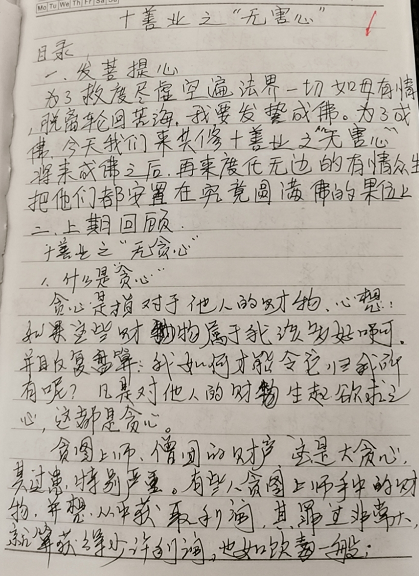 Mo Tu We Th Fr Sa Su
十善业之“无害心”
目录
一.发菩提心
为了救度尽虚空遍法界一切如母有情
脱离轮回苦海，我要发誓成佛。为了成
佛，今天我们来共修十善业之“无害心”
将来成佛之后，再来度化无边的有情众生
把他们都安置在究竟圆满佛的果位上
二.上期回顾
十善业之“无贪心”
1.什么是“贪心”
贪心是指对于他人的财物，心想：
如果这些财物属于我该多好啊，
并且反复盘算：我如何才能令它归我所
有呢？凡是对他人的财物生起欲求之
心，这都是贪心。
贪图上师、僧团的财产这是大贪心，
其过患特别严重。有些人贪图上师手中的财
物，并想从中获取利润，其罪过非常大，
就算获得少许利润，也如饮毒一般；